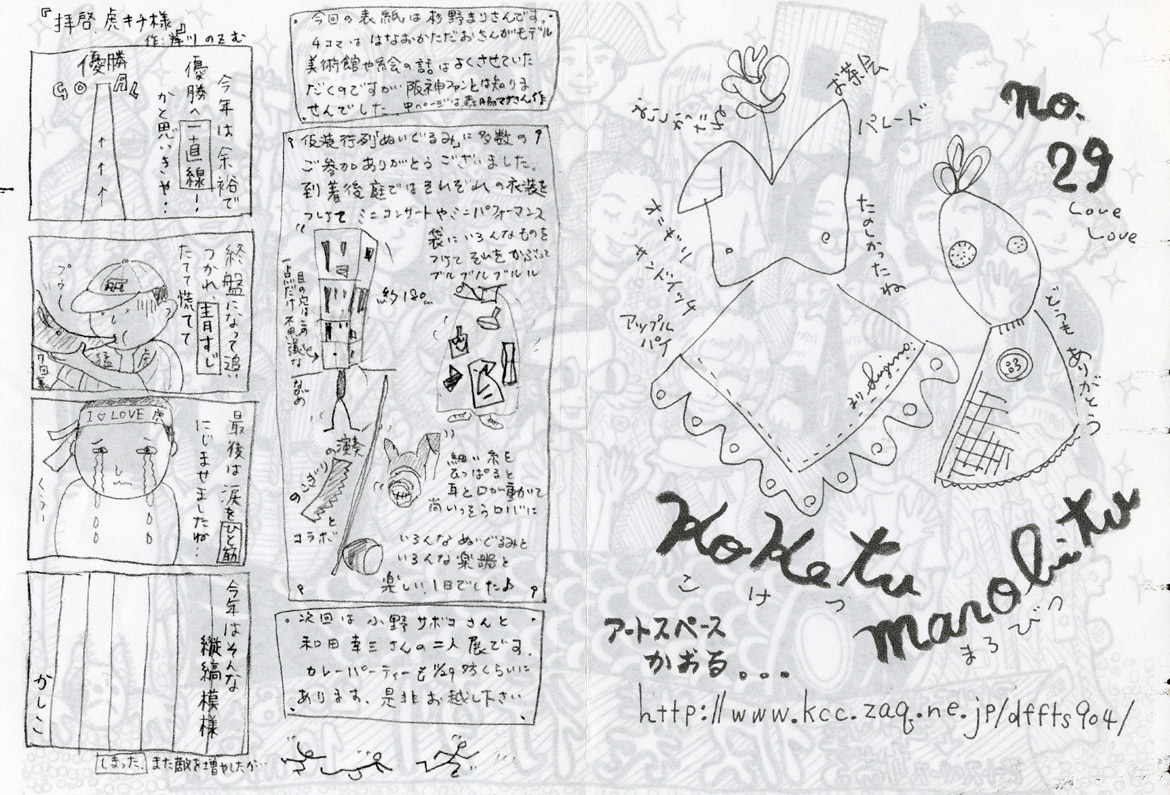 『拝啓 虎キチ様』
今年は余裕で
優勝へ一直線!
かと思いきや…
優勝
GO
終盤になって追い
つかれ、青すじ
たてて慌てて
プゥー
猛虎
最後は涙をひと筋
にじませましたね…
I♡LOVE虎
くぅー
今年はそんな
縦縞模様
かしこ
しまった、また敵を増やしたか…
今回の表紙は杉野まりさんです。
4コマははなおかただおさんがモデル
美術館や絵の話はよくさせていた
だくのですが阪神ファンとは知りま
せんでした
仮装行列ぬいぐるみに多数の
ご参加ありがとうございました。
到着後庭ではそれぞれの衣装を
つけてミニコンサートやミニパフォーマンス
袋にいろんなものを
つけてそれをかぶって
ブルブルブルル
約180cm
目の穴はこのどこか
一点だけ不思議な
ながめ
のこぎり
の演奏
と
コラボ
細い糸を
ひっぱると
耳と口が動かて
尚いっそうロバに
いろんなぬいぐるみと
いろんな楽器と
楽しい1日でした♪
次回は小野サボコさんと
和田幸三さんの二人展です。
カレーパーティーも11/29 夕方くらいに
あります。是非お越し下さい
お茶会
パレード
たのしかったね
オニギリ
サンドイッチ
アップル
パイ
mari Sugino
どうもありがとう
no.
29
Love
Love
Koketu
marobitu
こけつ
まろびつ
アートスペース
かおる...
http://www.kcc.zaq.ne.jp/dffts904/